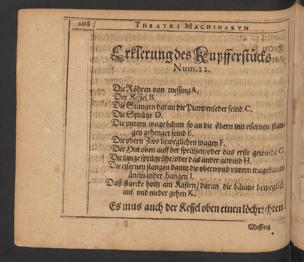 108 THEATRI MACHINARVM
Erklerung des Kupfferstücks
Num. 22.
Die Röhren von messing A.
Der Kessel B.
Die Stangen daran die Pumpenleder seind C.
Die Sprütze D.
Die vntern wagebäum so an die öbern mit eisernen stan-
gen gehenget seind E.
Die obern zwo beweglichen wagen F.
Die Hut oben auff der sprützen/oder das erste gewinde G.
Die lange sprützröhr/oder das ander gewind H.
Die eisernen stangen damit die oberwnd vntern wagebäum
aneinander hangen I.
Das starcke holtz am Kasten/daran die bäume beweglich
auf vnd nieder gehen K.
Es mus auch der Kessel oben einen löchrechten
Messing